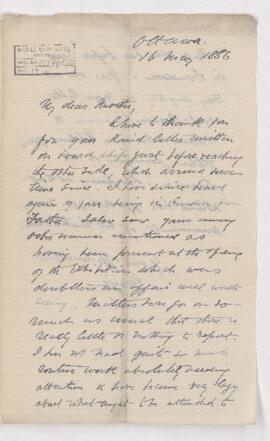 Ottawa.
16 May 1886
My dear Brother,
I have to thank you
for your kind letter written
on board ship just before reaching
the other side, which arrived some
time since. I have since heard
again of your being in London from
Father. I also saw your name
as
having been present at the opening
of the Exhibition which was
doubtless an affair well worth
seeing. Matters here go on so
much as usual that there is
really little or nothing to report.
I have not had quite so much
routine work absolutely needing
attention & have become very lazy
about what ought to be attended to